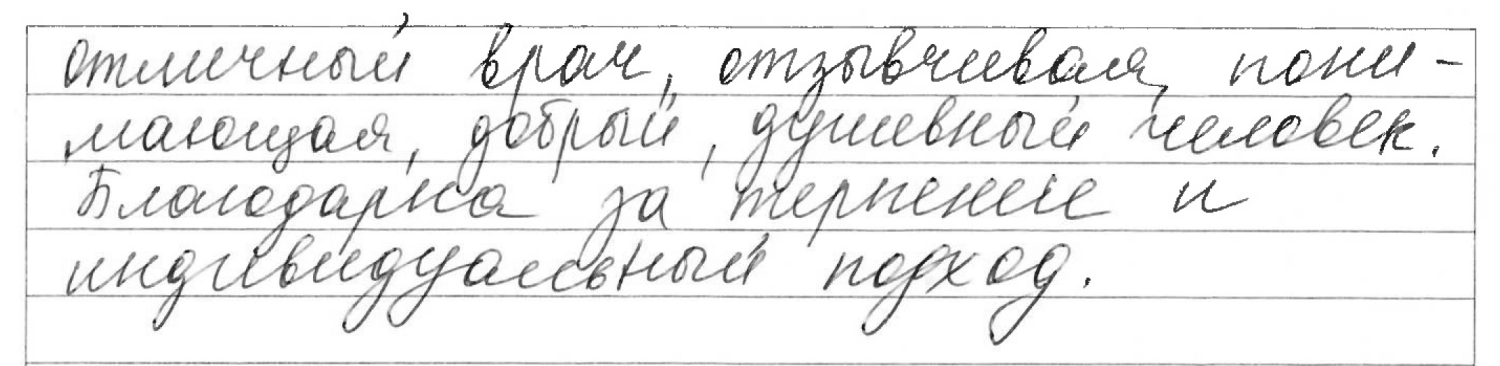 отличный врач, отзывчивая, пони-
мающая, добрый, душевный человек.
Благодарна за терпение и
индивидуальный подход.